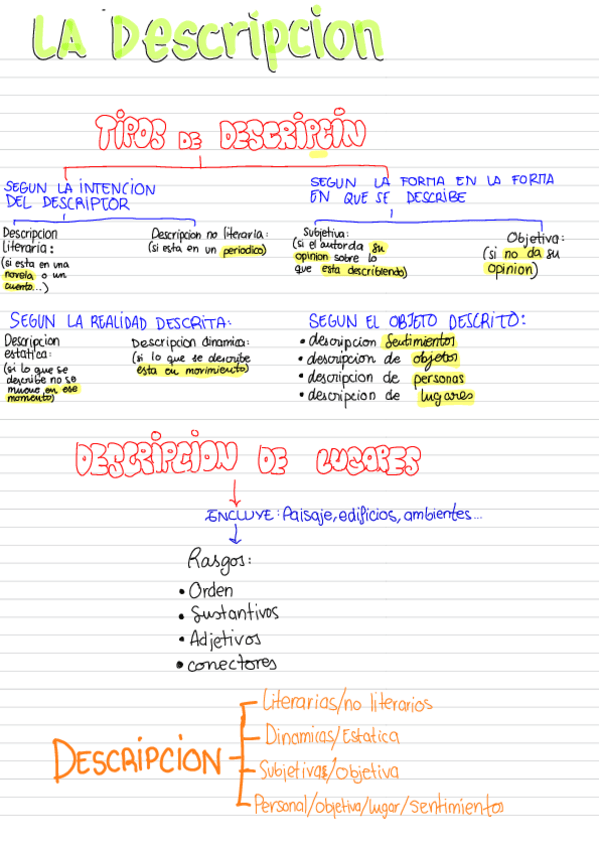 LA Descripcion
TIPOS DE DESCRIPCIN
SEGUN LA INTENCION
DEL DESCRIPTOR
Descripcion
literaria:
(si esta en una
novela o un
cuento...)
Descripcion no literaria:
(si esta en un periodico)
SEGUN LA FORMA EN LA FORMA
EN QUE SE DESCRIBE
Subjetiva:
(si el autor da su
opinion sobre lo
que esta describiendo)
Objetiva:
(si no da su
opinion)
SEGUN LA REALIDAD DESCRITA:
Descripcion
estatica:
(si lo que se
describe no se
mueve en ese
momento)
Descripcion dinamica:
(si lo que se describe
esta en movimiento)
SEGUN EL OBJETO DESCRITO:
• descripcion sentimientos
• descripcion de objetos
• descripcion de personas
• descripcion de lugares
DESCRIPCION DE LUGARES
ENCLUYE: Paisaje, edificios, ambientes...
Rasgos:
• Orden
• Sustantivos
• Adjetivos
• conectores
DESCRIPCION
Literarias/no literarios
Dinamicas/Estatica
Subjetivas/Objetiva
Personal/objetiva/lugar/sentimientos